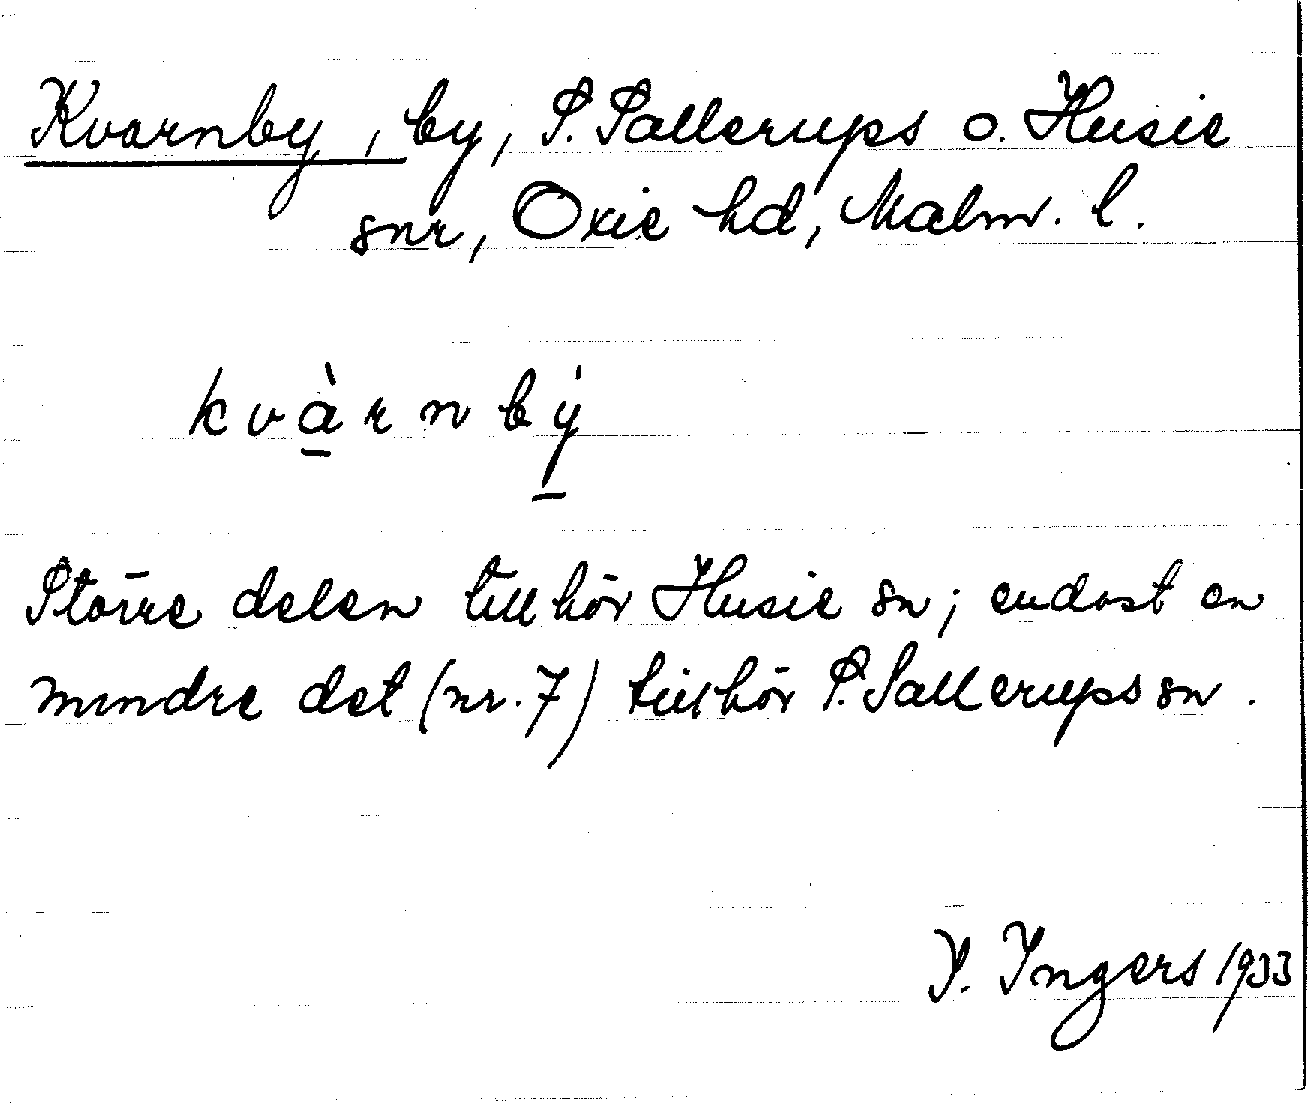 Kvarnby, by, S. Sallerups o. Husie
snr, Oxie hd, Malm. l.
kvàrnbý
Större delen tillhör Husie sn; endast en
mindre del (nr. 7) tillhör S. Sallerups sn.
I. Ingers 1933